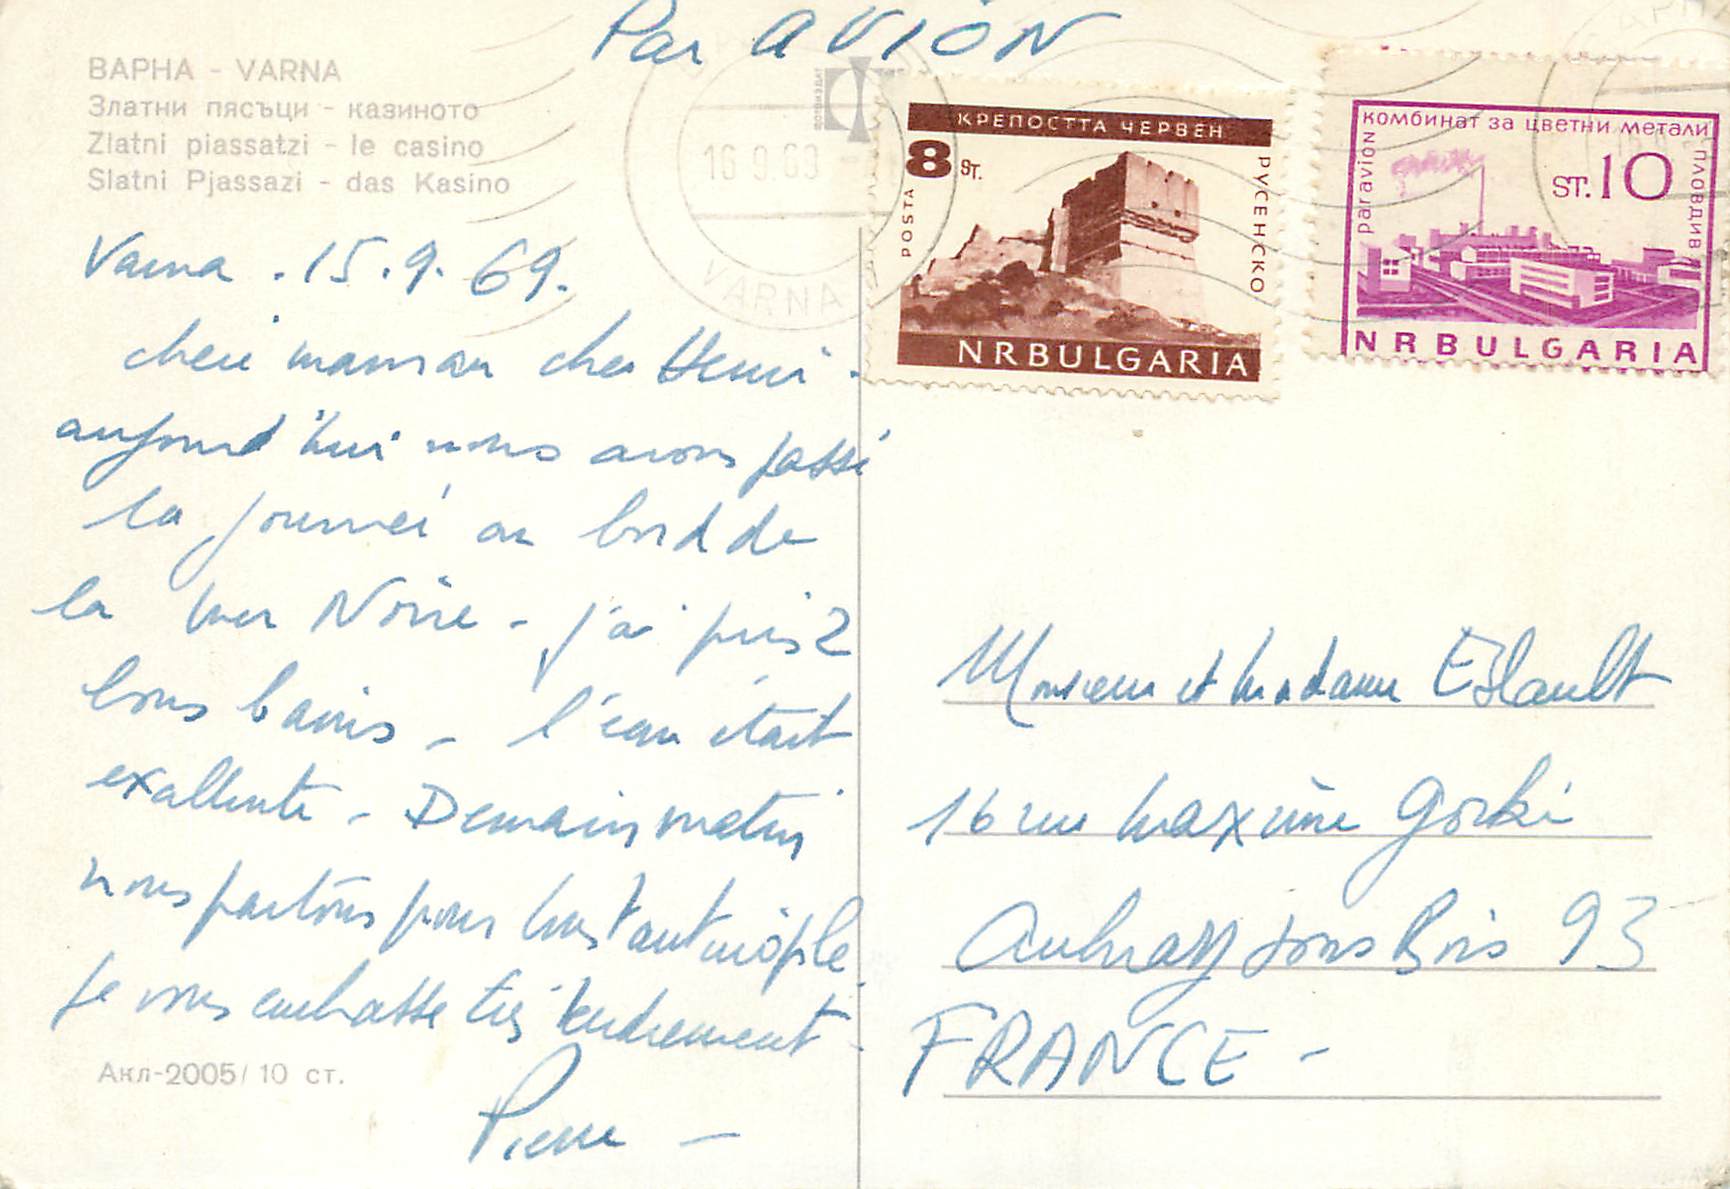 Par AVION
ВАРНА - VARNA
Златни пясъци - казиното
Zlatni piassatzi - le casino
Slatni Pjassazi - das Kasino
16.9.69
VARNA
КРЕПОСТТА ЧЕРВЕН
8 ST.
POSTA
РУСЕНСКО
NRBULGARIA
КОМБИНАТ ЗА ЦВЕТНИ МЕТАЛИ
par avion
ST. 10
ПЛОВДИВ
NRBULGARIA
Varna . 15.9.69.
cheri maman cher Henri -
aujourd'hui nous avons passé
la journéi au bord de
la mer Noire - j'ai pris 2
bons bains - l'eau était
exallente - Demain matin
nous partons pour
Je vous embrasse très tendrement -
Pierre -
Акл-2005/ 10 ст.
Monsieur et Madame
16 rue Maxime Gorki
Aulnay sous Bois 93
FRANCE -